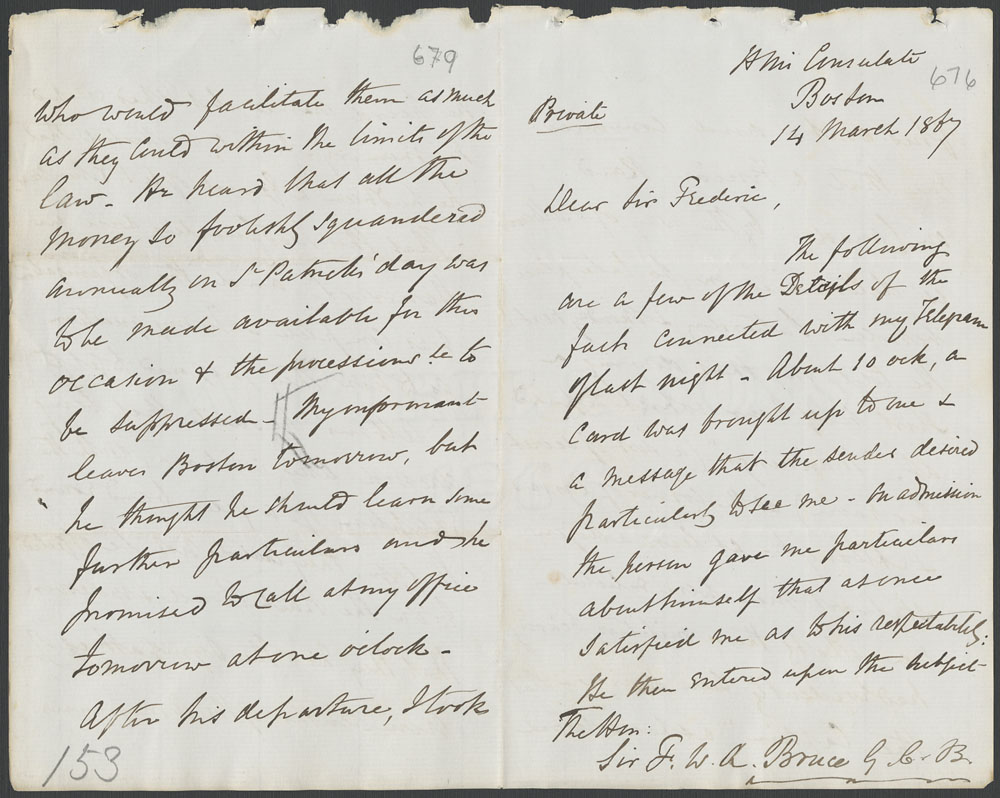 679
who would facilitate them as much
as they could within the limits of the
law - He heard that all the
money so foolishly squandered
annually on St Patrick's day was
to be made available for this
occasion & the processions to
be suppressed - My informant
leaves Boston tomorrow, but
he thought he should learn some
further particulars and he
promised to call at my office
tomorrow at one o'clock -
After his departure, I took
153
676
HM's Consulate
Boston
Private
14 March 1867
Dear Sir Frederic,
The following
are a few of the Details of the
facts connected with my Telegram
of last night - About 10 ock, a
card was brought up to me &
a message that the sender desired
particularly to see me - On admission
the person gave me particulars
about himself that at once
satisfied me as to his respectability:
He then entered upon the subject
The Hon:
Sir F. W. A. Bruce G. C. B.